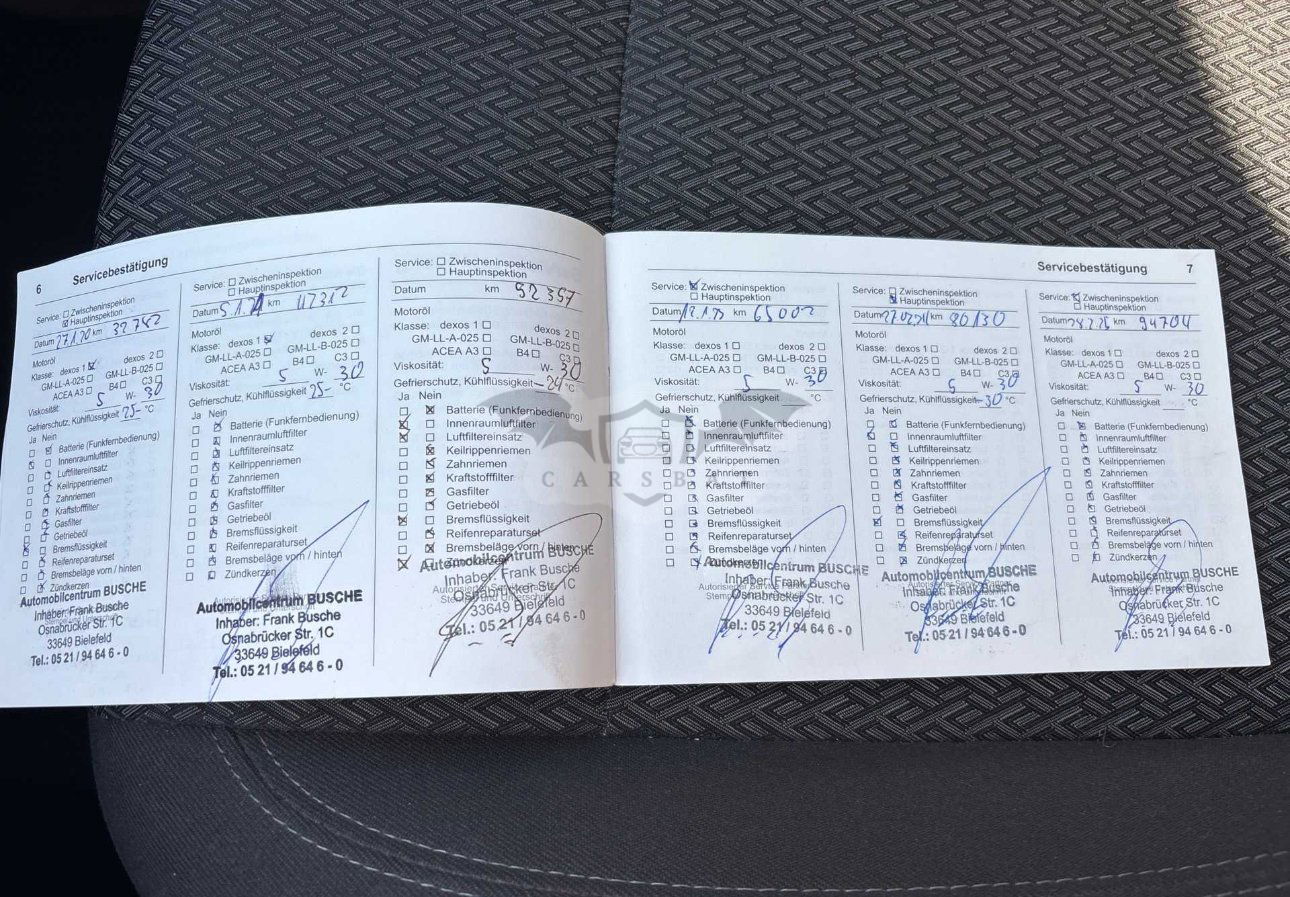 6 Servicebestätigung
Service: Zwischeninspektion
Hauptinspektion
Datum 27.1.20 km 32742
Motoröl
Klasse: dexos 1 dexos 2
GM-LL-A-025 GM-LL-B-025
ACEA A3 B4 C3
Viskosität: 5 W- 30
Gefrierschutz, Kühlflüssigkeit 25- °C
Ja Nein
Batterie (Funkfernbedienung)
Innenraumluftfilter
Luftfiltereinsatz
Keilrippenriemen
Zahnriemen
Kraftstofffilter
Gasfilter
Getriebeöl
Bremsflüssigkeit
Reifenreparaturset
Bremsbeläge vorn / hinten
Zündkerzen
Automobilcentrum BUSCHE
Inhaber: Frank Busche
Osnabrücker Str. 1C
33649 Bielefeld
Tel.: 05 21 / 94 64 6 - 0
Service: Zwischeninspektion
Hauptinspektion
Datum 5.1.21 km 47312
Motoröl
Klasse: dexos 1 dexos 2
GM-LL-A-025 GM-LL-B-025
ACEA A3 B4 C3
Viskosität: 5 W- 30
Gefrierschutz, Kühlflüssigkeit 25- °C
Ja Nein
Batterie (Funkfernbedienung)
Innenraumluftfilter
Luftfiltereinsatz
Keilrippenriemen
Zahnriemen
Kraftstofffilter
Gasfilter
Getriebeöl
Bremsflüssigkeit
Reifenreparaturset
Bremsbeläge vorn / hinten
Zündkerzen
Automobilcentrum BUSCHE
Inhaber: Frank Busche
Osnabrücker Str. 1C
33649 Bielefeld
Tel.: 05 21 / 94 64 6 - 0
Service: Zwischeninspektion
Hauptinspektion
Datum km 52357
Motoröl
Klasse: dexos 1 dexos 2
GM-LL-A-025 GM-LL-B-025
ACEA A3 B4 C3
Viskosität: 5 W- 30
Gefrierschutz, Kühlflüssigkeit -24 °C
Ja Nein
Batterie (Funkfernbedienung)
Innenraumluftfilter
Luftfiltereinsatz
Keilrippenriemen
Zahnriemen
Kraftstofffilter
Gasfilter
Getriebeöl
Bremsflüssigkeit
Reifenreparaturset
Bremsbeläge vorn / hinten
Automobilcentrum BUSCHE
Inhaber: Frank Busche
Osnabrücker Str. 1C
33649 Bielefeld
Tel.: 05 21 / 94 64 6 - 0
Servicebestätigung 7
Service: Zwischeninspektion
Hauptinspektion
Datum 12.1.23 km 65002
Motoröl
Klasse: dexos 1 dexos 2
GM-LL-A-025 GM-LL-B-025
ACEA A3 B4 C3
Viskosität: 5 W- 30
Gefrierschutz, Kühlflüssigkeit °C
Ja Nein
Batterie (Funkfernbedienung)
Innenraumluftfilter
Luftfiltereinsatz
Keilrippenriemen
Zahnriemen
Kraftstofffilter
Gasfilter
Getriebeöl
Bremsflüssigkeit
Reifenreparaturset
Bremsbeläge vorn / hinten
Zündkerzen
Automobilcentrum BUSCHE
Inhaber: Frank Busche
Osnabrücker Str. 1C
33649 Bielefeld
Tel.: 05 21 / 94 64 6 - 0
Service: Zwischeninspektion
Hauptinspektion
Datum 27.02.24 km 80130
Motoröl
Klasse: dexos 1 dexos 2
GM-LL-A-025 GM-LL-B-025
ACEA A3 B4 C3
Viskosität: 5 W- 30
Gefrierschutz, Kühlflüssigkeit -30 °C
Ja Nein
Batterie (Funkfernbedienung)
Innenraumluftfilter
Luftfiltereinsatz
Keilrippenriemen
Zahnriemen
Kraftstofffilter
Gasfilter
Getriebeöl
Bremsflüssigkeit
Reifenreparaturset
Bremsbeläge vorn / hinten
Zündkerzen
Automobilcentrum BUSCHE
Inhaber: Frank Busche
Osnabrücker Str. 1C
33649 Bielefeld
Tel.: 05 21 / 94 64 6 - 0
Service: Zwischeninspektion
Hauptinspektion
Datum km 94704
Motoröl
Klasse: dexos 1 dexos 2
GM-LL-A-025 GM-LL-B-025
ACEA A3 B4 C3
Viskosität: 5 W- 30
Gefrierschutz, Kühlflüssigkeit °C
Ja Nein
Batterie (Funkfernbedienung)
Innenraumluftfilter
Luftfiltereinsatz
Keilrippenriemen
Zahnriemen
Kraftstofffilter
Gasfilter
Getriebeöl
Bremsflüssigkeit
Reifenreparaturset
Bremsbeläge vorn / hinten
Zündkerzen
Automobilcentrum BUSCHE
Inhaber: Frank Busche
Osnabrücker Str. 1C
33649 Bielefeld
Tel.: 05 21 / 94 64 6 - 0
CARSB